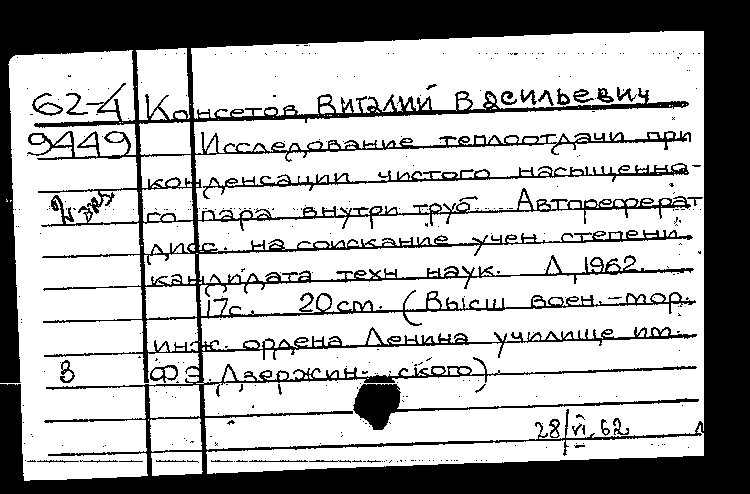 62-4 Консетов, Виталий Васильевич
9449 Исследование теплоотдачи при
конденсации чистого насыщенно-
2 экз. го пара внутри труб. Автореферат
дисс. на соискание учен. степени
кандидата техн. наук. Л., 1962.
17с. 20 см. (Высш. воен.-мор.
инж. ордена Ленина училище им.
В Ф.Э. Дзержинского).
28/VI.62 Л